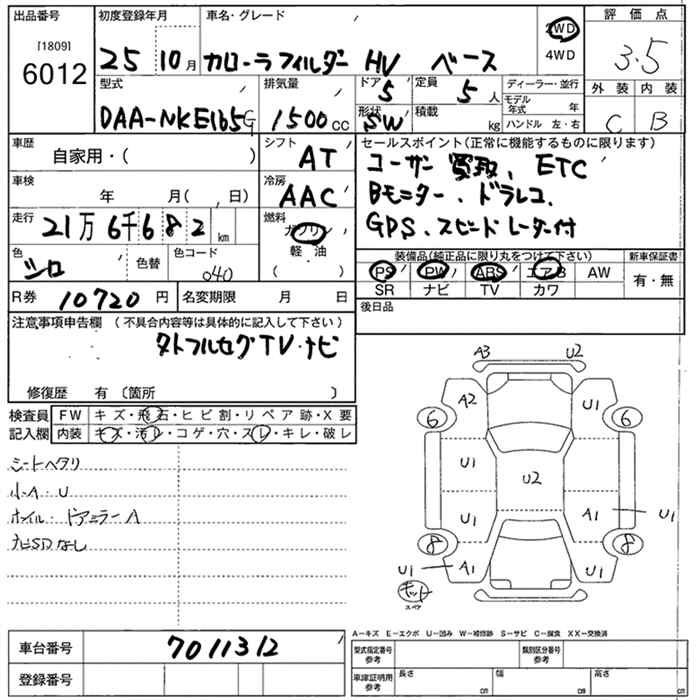 出品番号 初度登録年月 車名・グレード 2WD 評価点
[1809]
6012 25 10月 カローラフィルダー HV ベース 4WD 3.5
型式 排気量 ドア 5 定員 5人 ディーラー・並行 外装 内装
モデル年式 年
DAA-NKE165G 1500cc 形状 SW 積載 kg ハンドル 左・右 C B
車歴 シフト セールスポイント(正常に機能するものに限ります)
自家用・( ) AT コーサン買取、ETC
車検 冷房 Bモニター、ドラレコ、
年 月( 、 日) AAC GPS、スピードレーダー付
走行 燃料
21万6千682km ガソリン 装備品(純正品に限り丸をつけて下さい) 新車保証書
色 色替 色コード 軽・油 PS PW ABS エアB AW 有・無
シロ 040 ( ) SR ナビ TV カワ
R券 10720円 名変期限 月 日 後日品
注意事項申告欄 (不具合内容等は具体的に記入して下さい)
タトフルセグTV・ナビ
修復歴 有 〔箇所 〕
検査員 FW キズ・飛石・ヒビ割・リペア跡・X要
記入欄 内装 キズ・汚レ・コゲ・穴・スレ・キレ・破レ
シートヘタリ
小A・U
ホイル・ドアミラーA
ナビSDなし
A3 U2
A2 U1
6 6
U1 U2
U1 A1 U1
8 8
U1 A1 U1
キット
スペア
A-キズ E-エクボ U-凹み W-補修跡 S-サビ C-腐食 XX-交換済
車台番号 7011312 型式指定番号 参考 類別区分番号 参考
登録番号 車庫証明用 参考 長さ cm 幅 cm 高さ cm